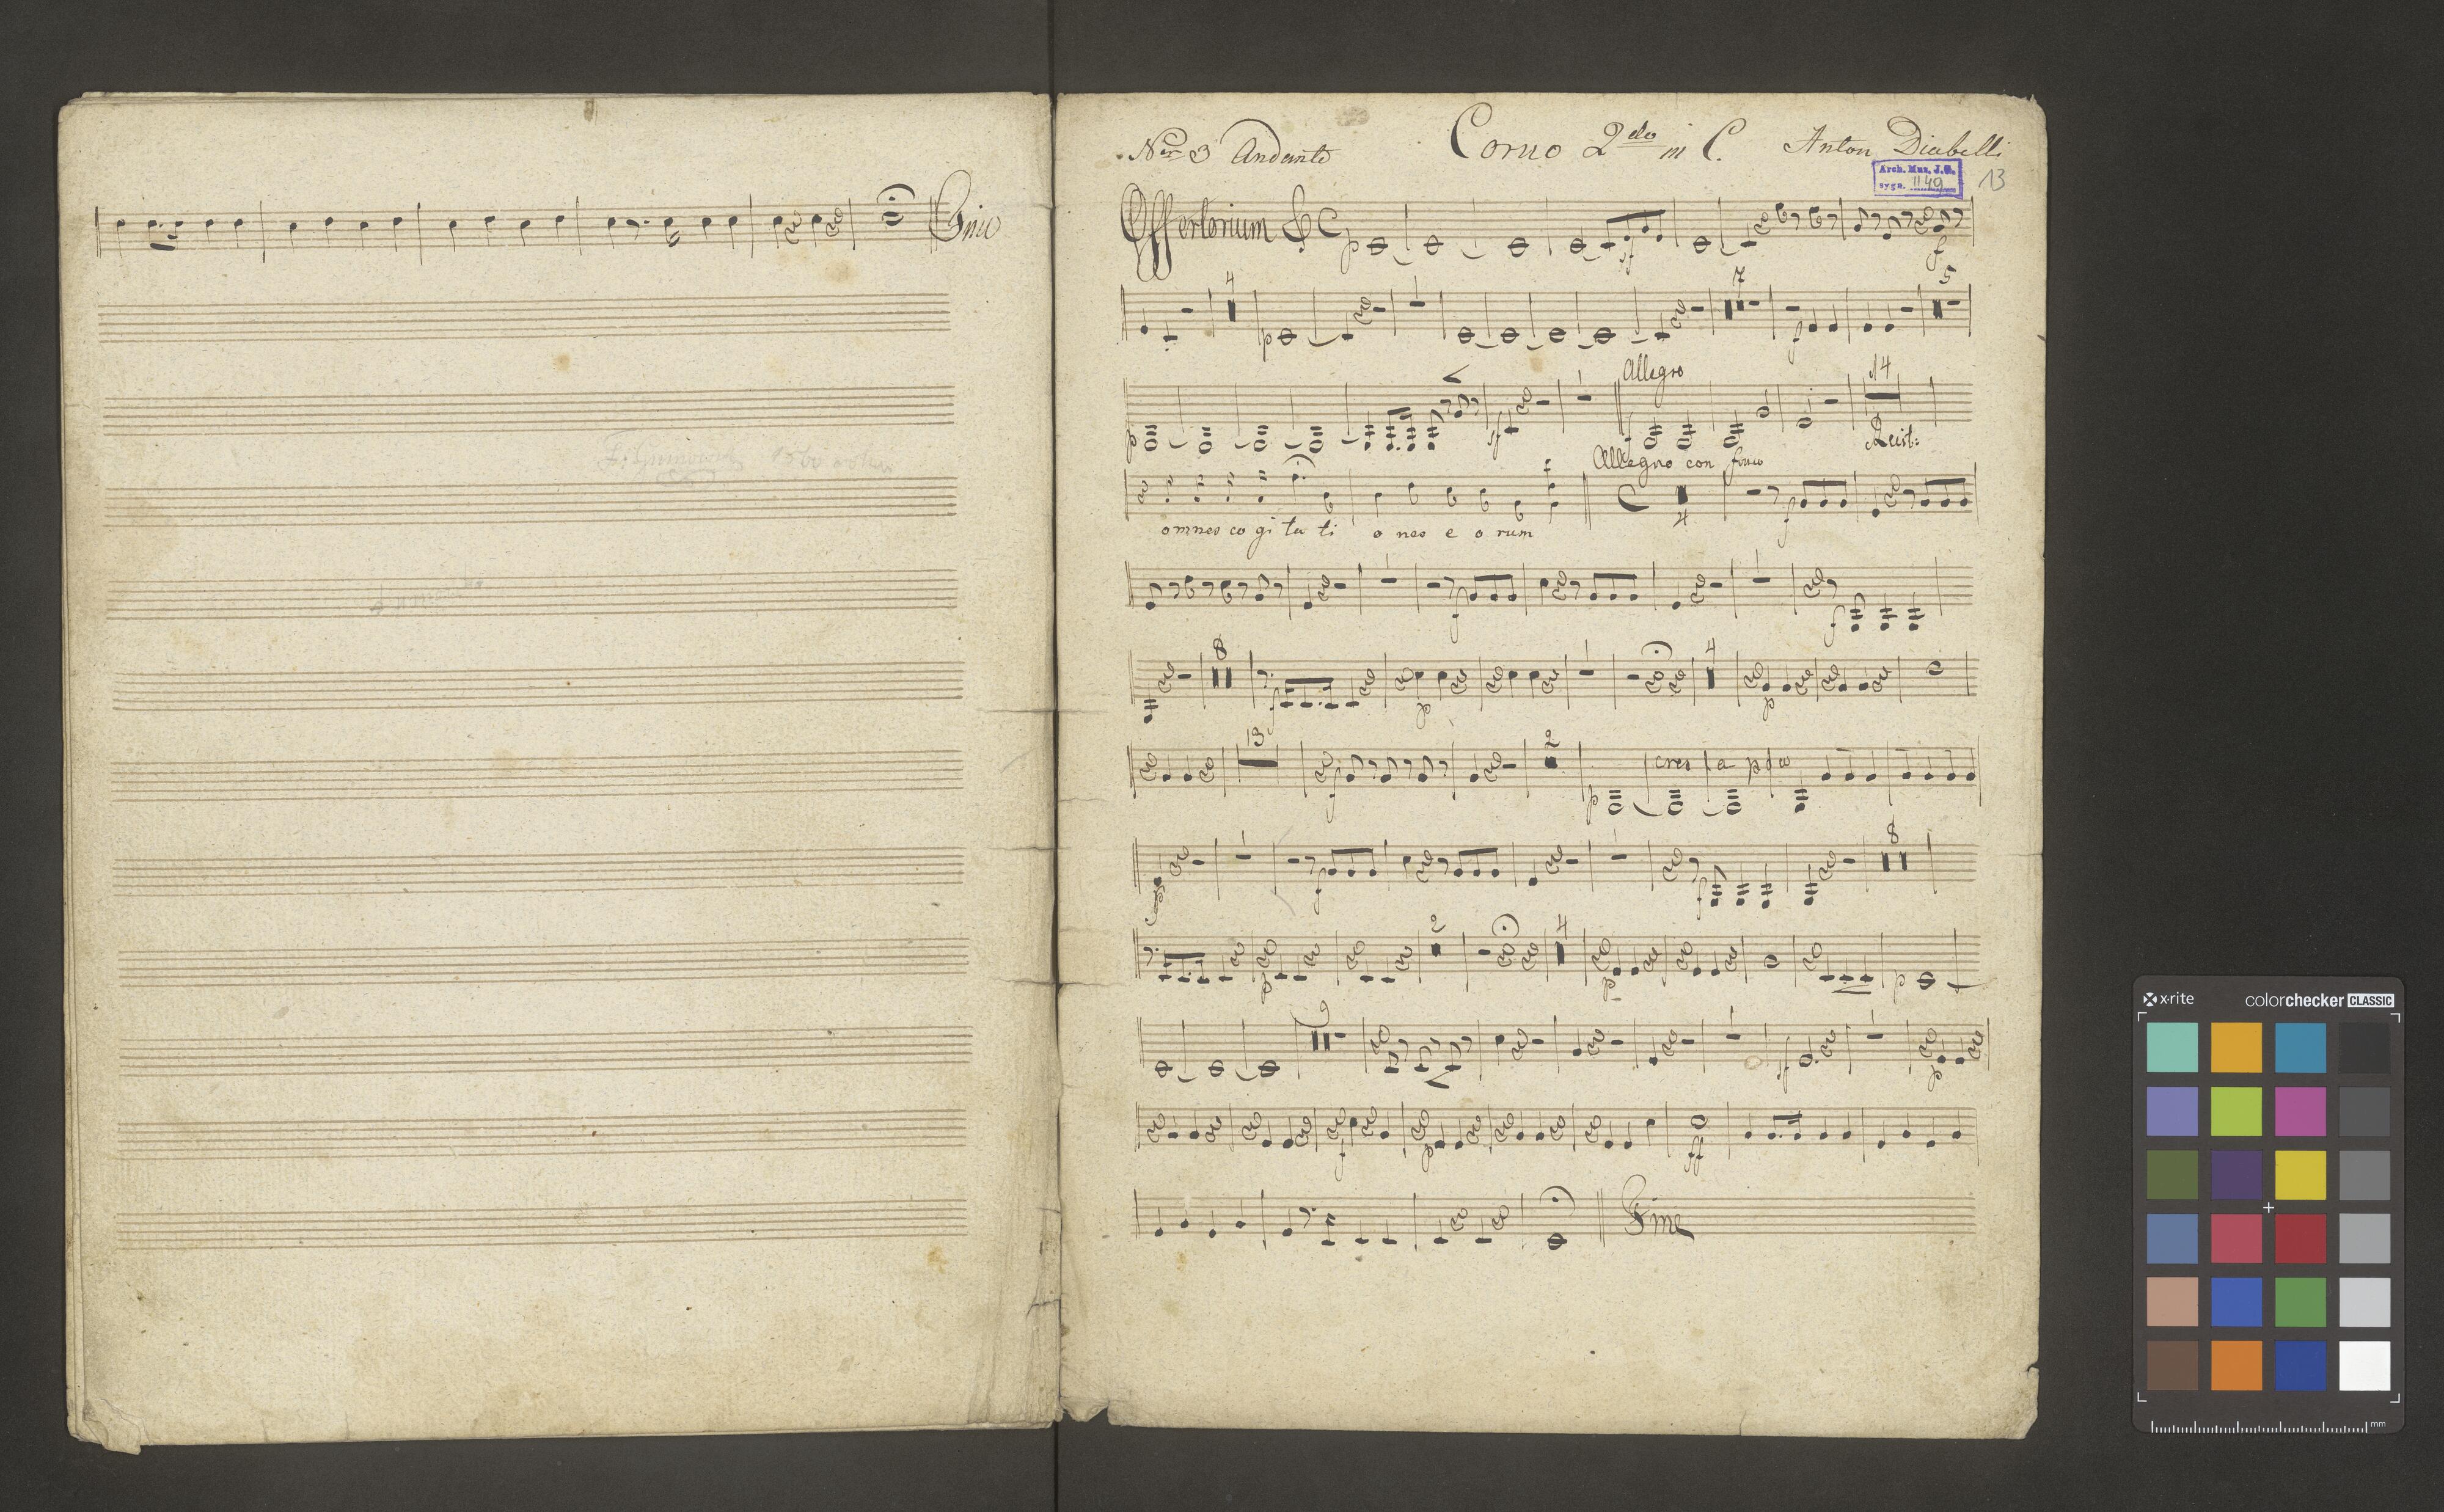 Fine
Nro 3 Andante Corno 2do in C. Anton Diabelli
Arch. Muz. J. G.
sygn. 1149
13
Offertorium C p sf f
4 p 7 f 5
p sf Allegro f 14 Recit:
Allegro con fuoco
4 f
omnes co gi ta ti o nes e o rum
f f
8 f p 4 p
13 f 2 p cres
f f 8
p 2 4 p p
9 sf p
f p ff
Fine
x-rite colorchecker CLASSIC
mm